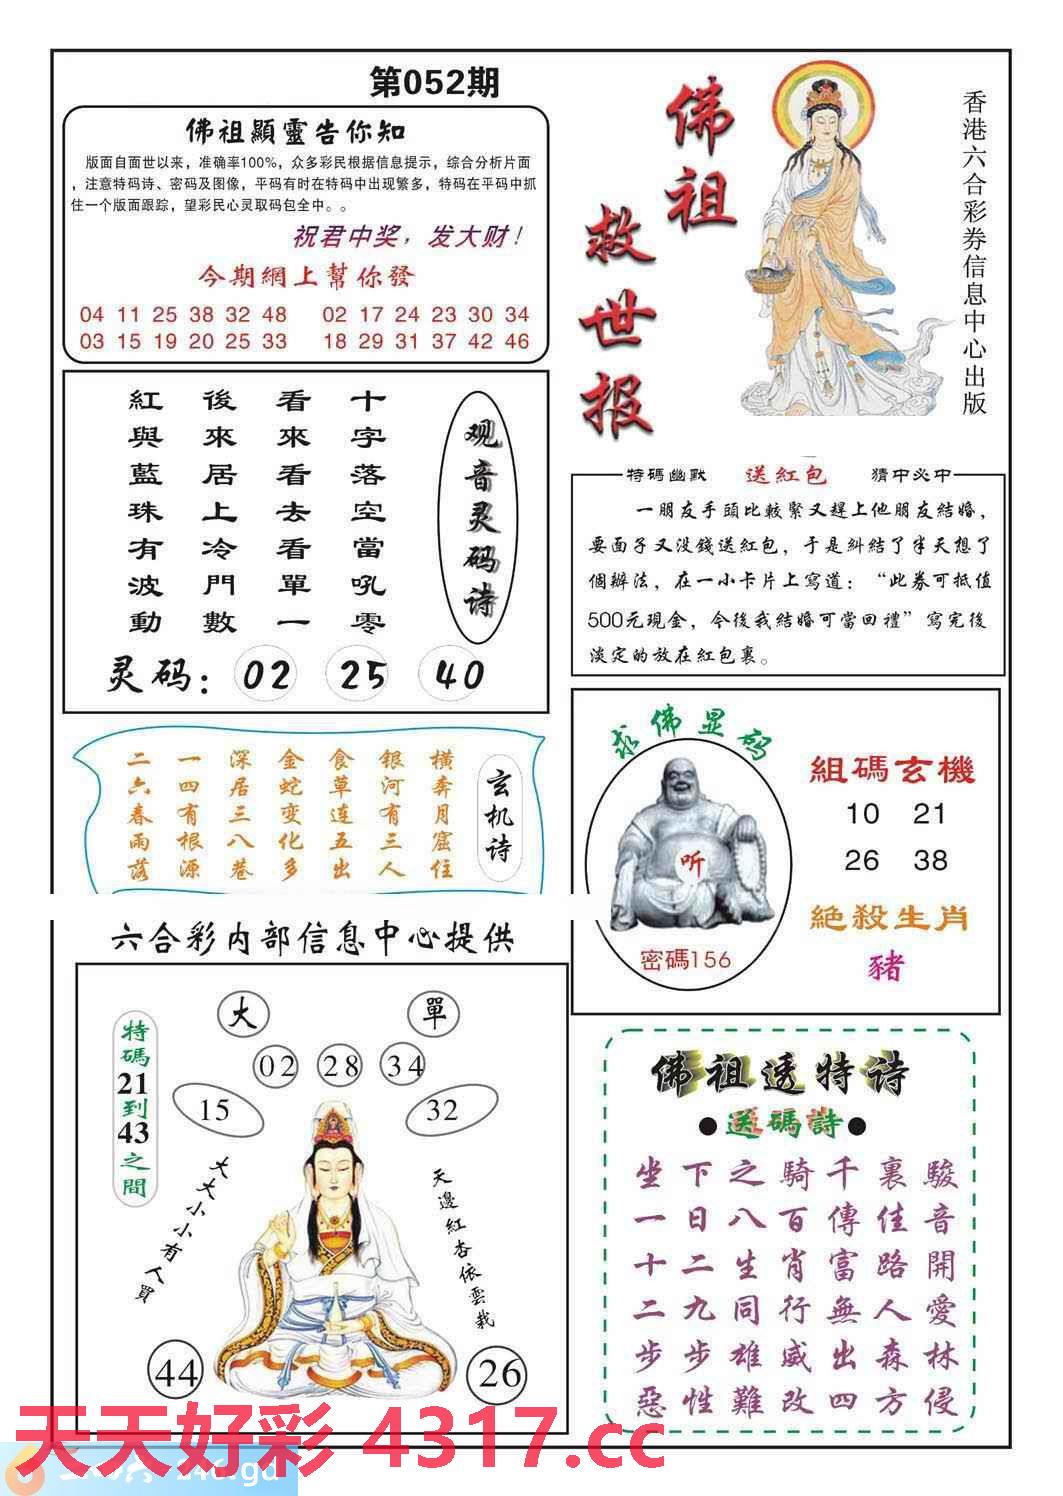 第052期
佛祖顯靈告你知
版面自面世以来，准确率100%，众多彩民根据信息提示，综合分析片面
，注意特码诗、密码及图像，平码有时在特码中出现繁多，特码在平码中抓
住一个版面跟踪，望彩民心灵取码包全中。。
祝君中奖，发大财！
今期網上幫你發
04 11 25 38 32 48 02 17 24 23 30 34
03 15 19 20 25 33 18 29 31 37 42 46
佛祖
救世报
香港六合彩券信息中心出版
观音灵码诗
十字落空當吼零
看來看去看單一
後來居上冷門數
紅與藍珠有波動
灵码：02 25 40
特碼幽默 送紅包 猜中必中
一朋友手頭比較緊又趕上他朋友結婚，
要面子又没錢送紅包，于是糾結了半天想了
個辦法，在一小卡片上寫道：“此券可抵值
500元現金，今後我結婚可當回禮”寫完後
淡定的放在紅包裏。
玄机诗
橫奔月窟住
银河有三人
食草连五出
金蛇变化多
深居三八巷
一四有根源
二六春雨落
求佛显码
听
密碼156
組碼玄機
10 21
26 38
絕殺生肖
豬
六合彩内部信息中心提供
特碼21到43之間
大 單
02 28 34
15 32
大大小小有人買
天邊紅杏依雲栽
44 26
佛祖透特诗
●送碼詩●
駿音開愛林侵
裏佳路人森方
千傳富無出四
騎百肖行威改
之八生同雄難
下日二九步性
坐一十二步惡
天天好彩 4317.cc
246.gd